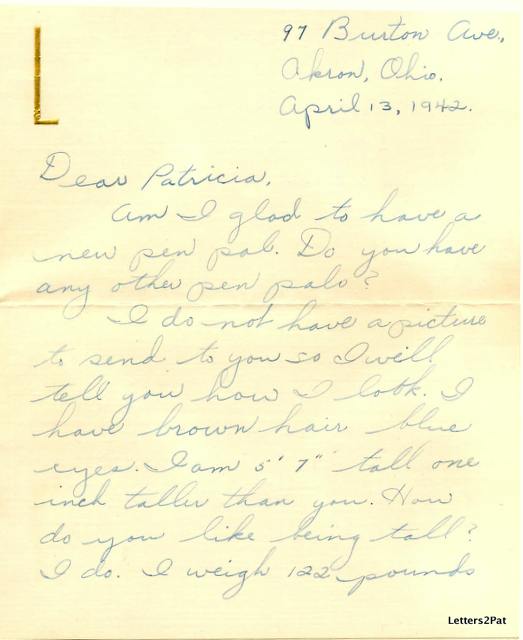 L
97 Burton Ave,
Akron, Ohio.
April 13, 1942.
Dear Patricia,
Am I glad to have a
new pen pal. Do you have
any other pen pals?
I do not have a picture
to send to you so I will
tell you how I look. I
have brown hair blue
eyes. I am 5' 7" tall one
inch taller than you. How
do you like being tall?
I do. I weigh 122 pounds
Letters2Pat